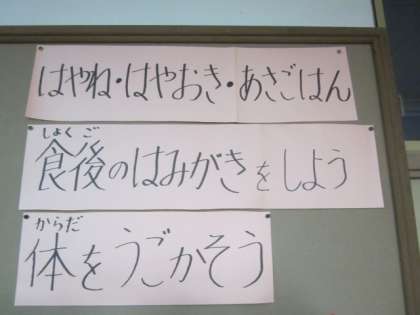 はやね・はやおき・あさごはん
しょくご
食後のはみがきをしよう
からだ
体をうごかそう